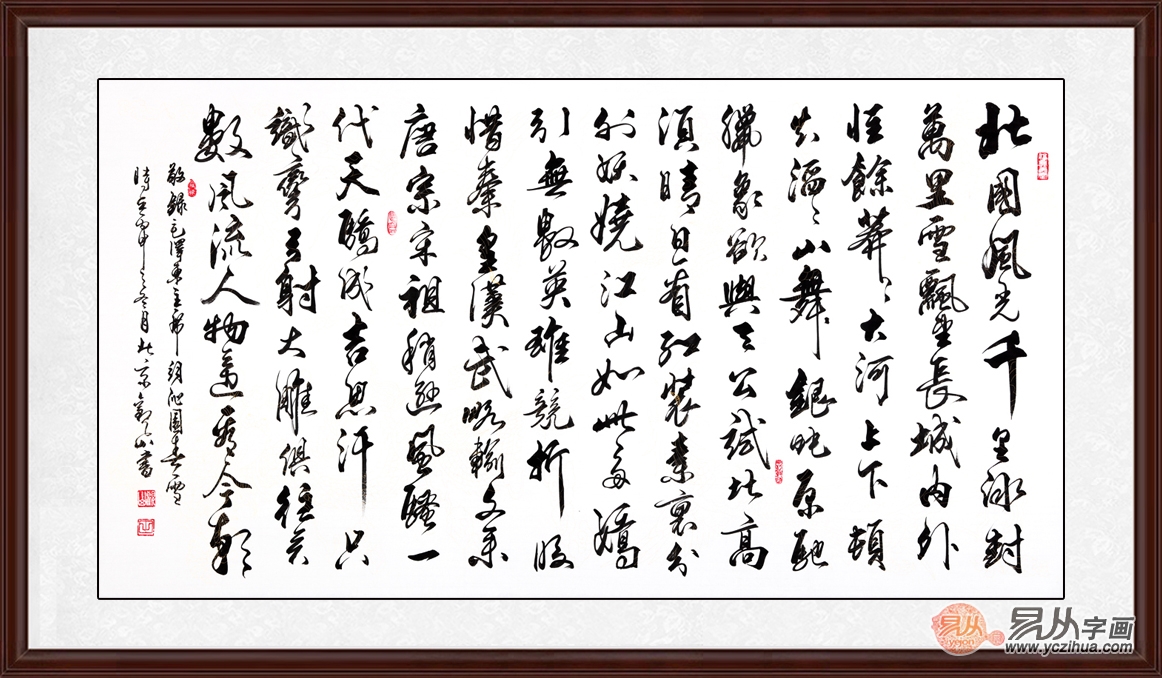 北國風光千里冰封
萬里雪飄望長城內外
惟餘莽々大河上下頓
失滔々山舞銀蛇原馳
臘象欲與天公試比高
須晴日看紅裝素裹分
外妖嬈江山如此多嬌
引無數英雄競折腰
惜秦皇漢武略輸文采
唐宗宋祖稍遜風騷一
代天驕成吉思汗只
識彎弓射大雕俱往矣
數風流人物還看今朝
敬錄毛澤東主席詞沁園春雪
時 之冬月北京 山書
易从
yicon
易从字画
www.yczihua.com